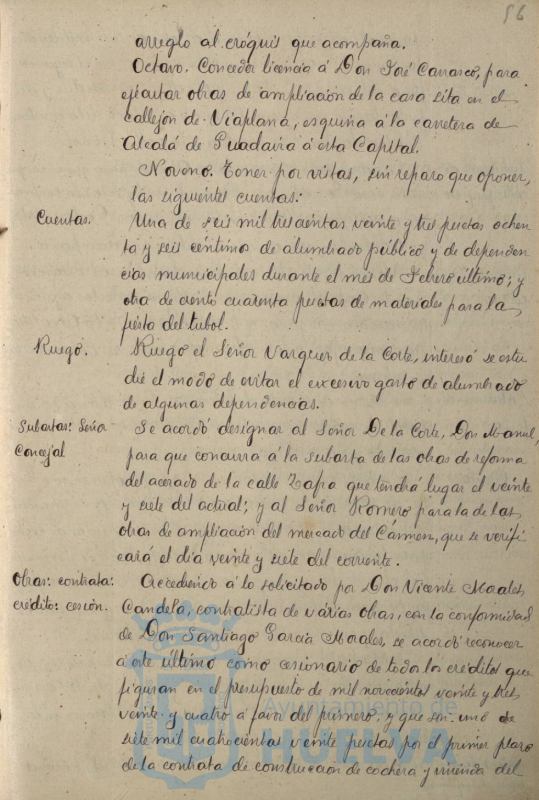 56
arreglo al cróquis que acompaña.
Octavo. Conceder licencia á Don José Carrasco, para
ejecutar obras de ampliación de la casa sita en el
callejón de Viaplana, esquina á la carretera de
Alcalá de Guadaira á esta Capital.
Noveno. Tener por vistas, sin reparo que oponer,
las siguientes cuentas:
Cuentas.
Una de seis mil trescientas veinte y tres pesetas ochen
ta y seis céntimos de alumbrado público y de dependen
cias municipales durante el mes de Febrero último; y
otra de ciento cuarenta pesetas de materiales para la
fiesta del
Ruego.
Ruego el Señor Vazquez de la Corte, interesó se estu
die el modo de evitar el excesivo gasto de alumbrado
de algunas dependencias.
Subastas: Señor
Concejal
Se acordó designar al Señor De la Corte, Don Manuel,
para que concurra á la subasta de las obras de reforma
del acerado de la calle Zafra que tendrá lugar el veinte
y siete del actual; y al Señor Romero para la de las
obras de ampliación del mercado del Cármen, que se verifi
cará el día veinte y siete del corriente.
Obras: contrata:
crédito: cesión.
Accediendo á lo solicitado por Don Vicente Morales
Candela, contratista de várias obras, con la conformidad
de Don Santiago García Morales, se acordó reconocer
á este último como cesionario de todo los créditos que
figuran en el presupuesto de mil novecientos veinte y tres
veinte y cuatro á favor del primero, y que son: uno de
siete mil cuatrocientas veinte pesetas por el primer plazo
de la contrata de construcción de cochera y vivienda del
Ayuntamiento de
HUELVA